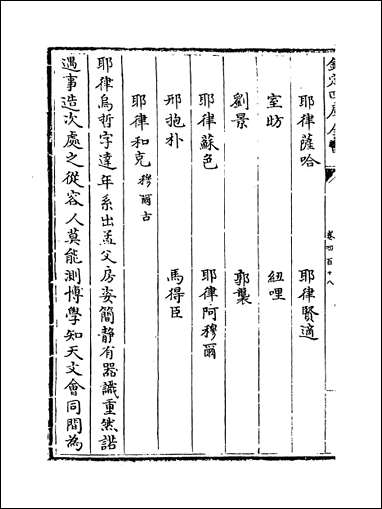 欽定四庫全書
卷四百十八
耶律薩哈 耶律賢適
室昉 紐哩
劉景 郭襲
耶律蘇色 耶律阿穆爾
邢抱朴 馬得臣
耶律和克 穆爾古
耶律烏哲字達年系出孟父房姿簡靜有器識重然諾
遇事造次處之從容人莫能測博學知天文會同間為